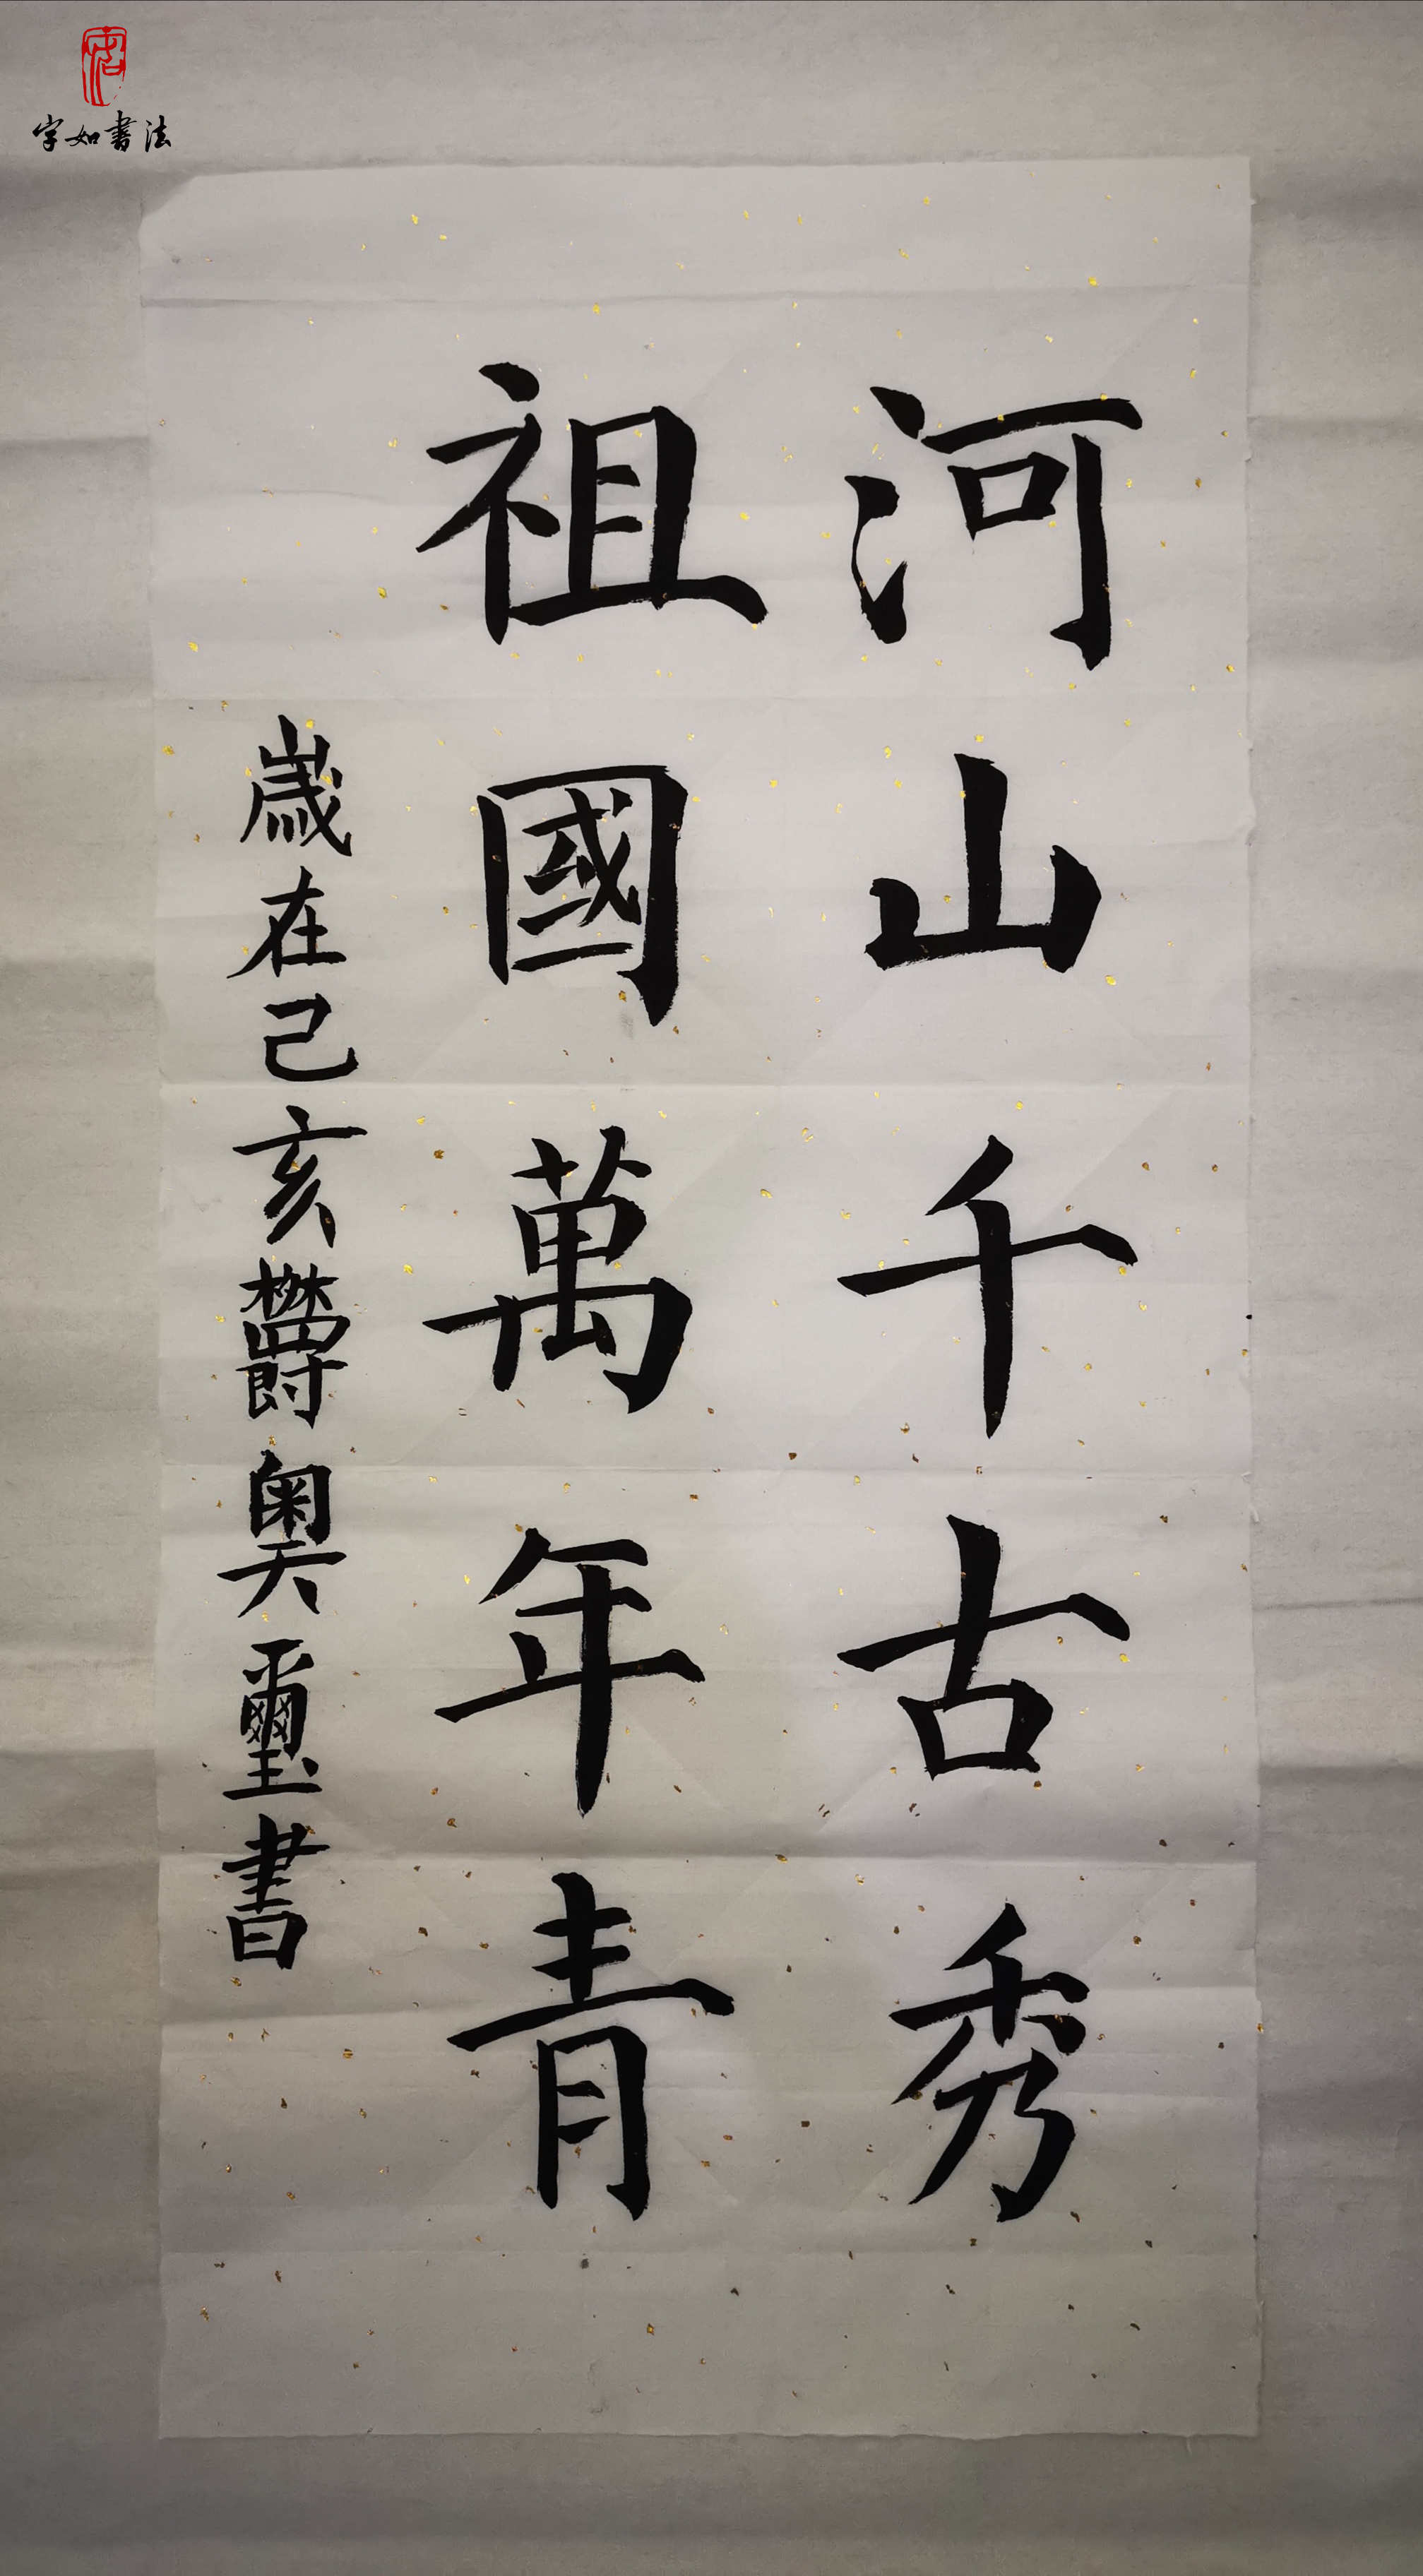 字如書法
河山千古秀
祖國萬年青
歲在己亥欝奧璽書